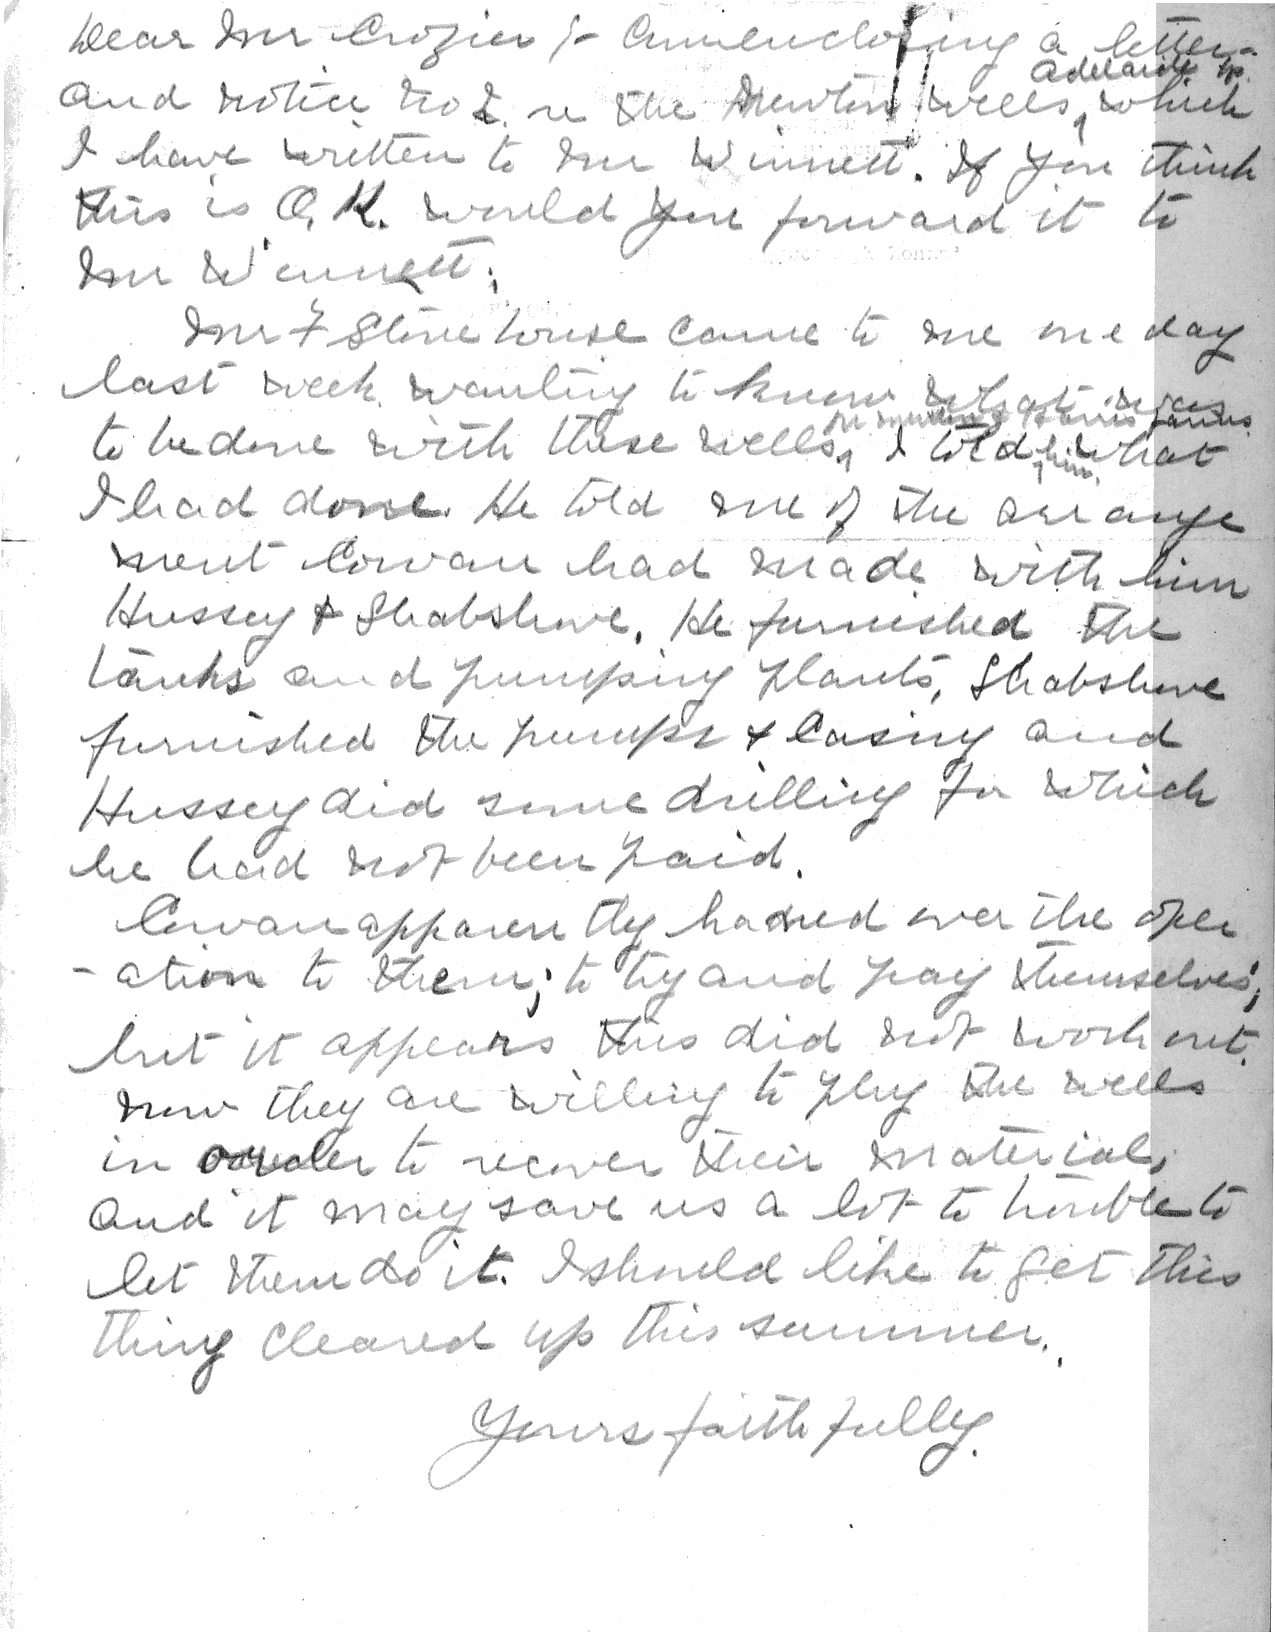 Dear Mr Crozier :- Am enclosing a letter
Adelaide Tp.
and notice No 2. re the Newton wells, which
I have written to Mr Winnett. If you think
this is O.K. would you forward it to
Mr Winnett.
Mr F Stonehouse came to me one day
last week wanting to know what was
on Newton & Harris farms
to be done with these wells, I told him what
I had done. He told me of the arrange
ment Cowan had made with him
Hussey & Shabshove. He furnished the
tanks and pumping plants, Shabshove
furnished the pumps & Casing and
Hussey did some drilling for which
he had not been paid.
Cowan apparently handed over the oper
-ation to them; to try and pay themselves;
but it appears this did not work out.
now they are willing to plug the wells
in order to recover their material,
and it may save us a lot to trouble to
let them do it. I should like to get this
thing cleared up this summer.
Yours faithfully.